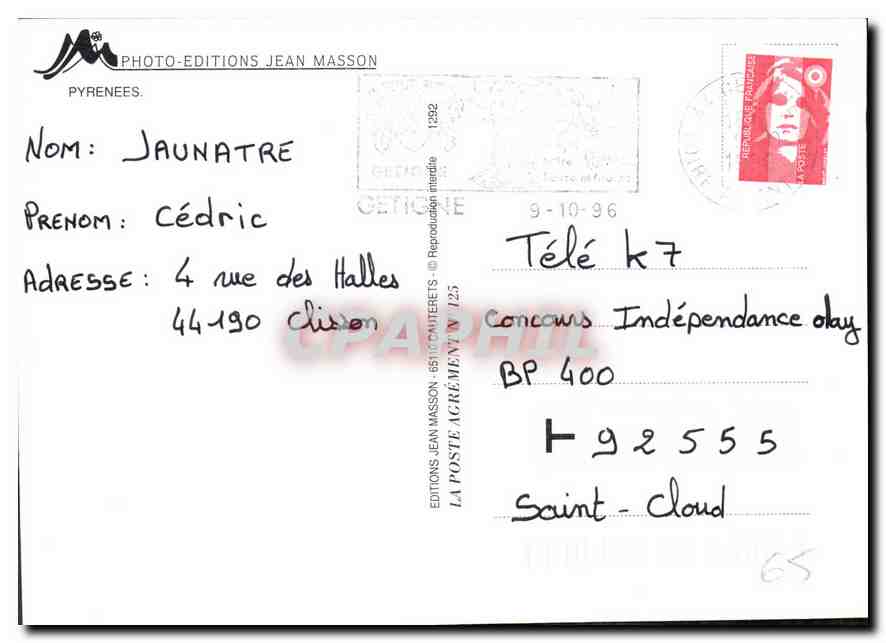 PHOTO-EDITIONS JEAN MASSON
PYRENEES.
NOM: JAUNATRE
PRENOM: Cédric
ADRESSE: 4 rue des Halles
44190 Clisson
EDITIONS JEAN MASSON - 65110 CAUTERETS - © Reproduction interdite 1292
LA POSTE AGRÉMENT N° 125
GETIGNE
GETIGNE
9-10-96
REPUBLIQUE FRANÇAISE
LA POSTE
Télé k7
Concours Indépendance olay
BP 400
92555
Saint-Cloud
65
CPAPHIL